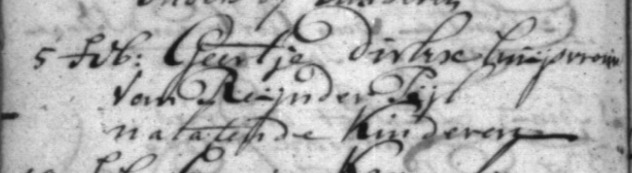 5 Feb: Geertje dirkse huijsvrouw
van Reijnder Tijl
nalatende Kinderen